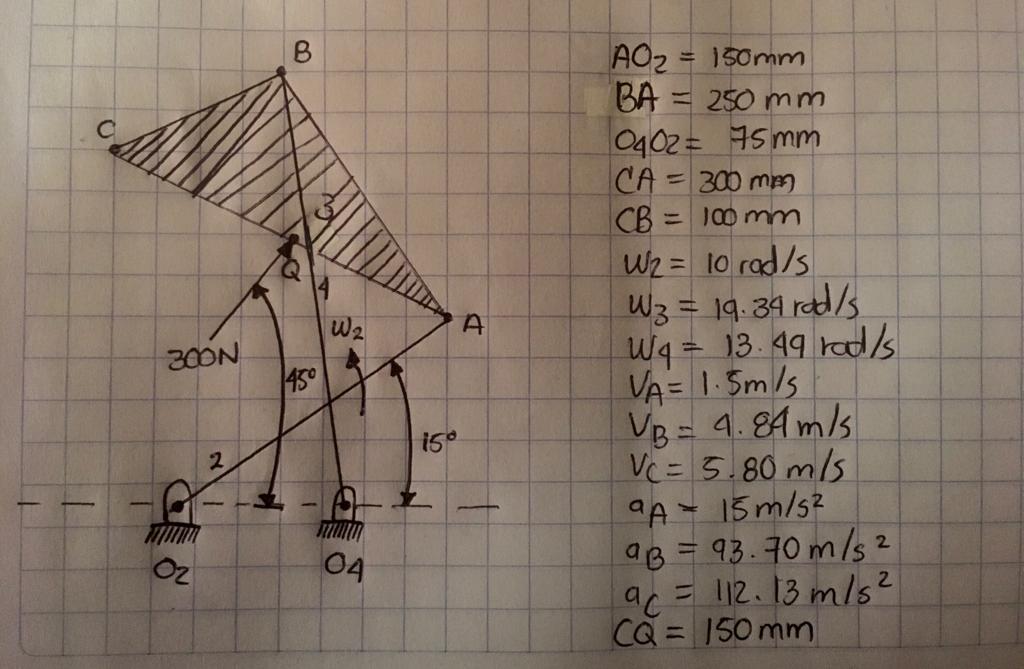 B
C
3
Q
4
A
300N
W2
45°
15°
2
O2
O4
AO2 = 150mm
BA = 250 mm
O4O2 = 75mm
CA = 300 mm
CB = 100 mm
W2 = 10 rad/s
W3 = 19.39 rad/s
W4 = 13.49 rad/s
VA = 1.5m/s
VB = 4.84 m/s
VC = 5.80 m/s
aA = 15 m/s²
aB = 93.70 m/s²
aC = 112.13 m/s²
CQ = 150 mm